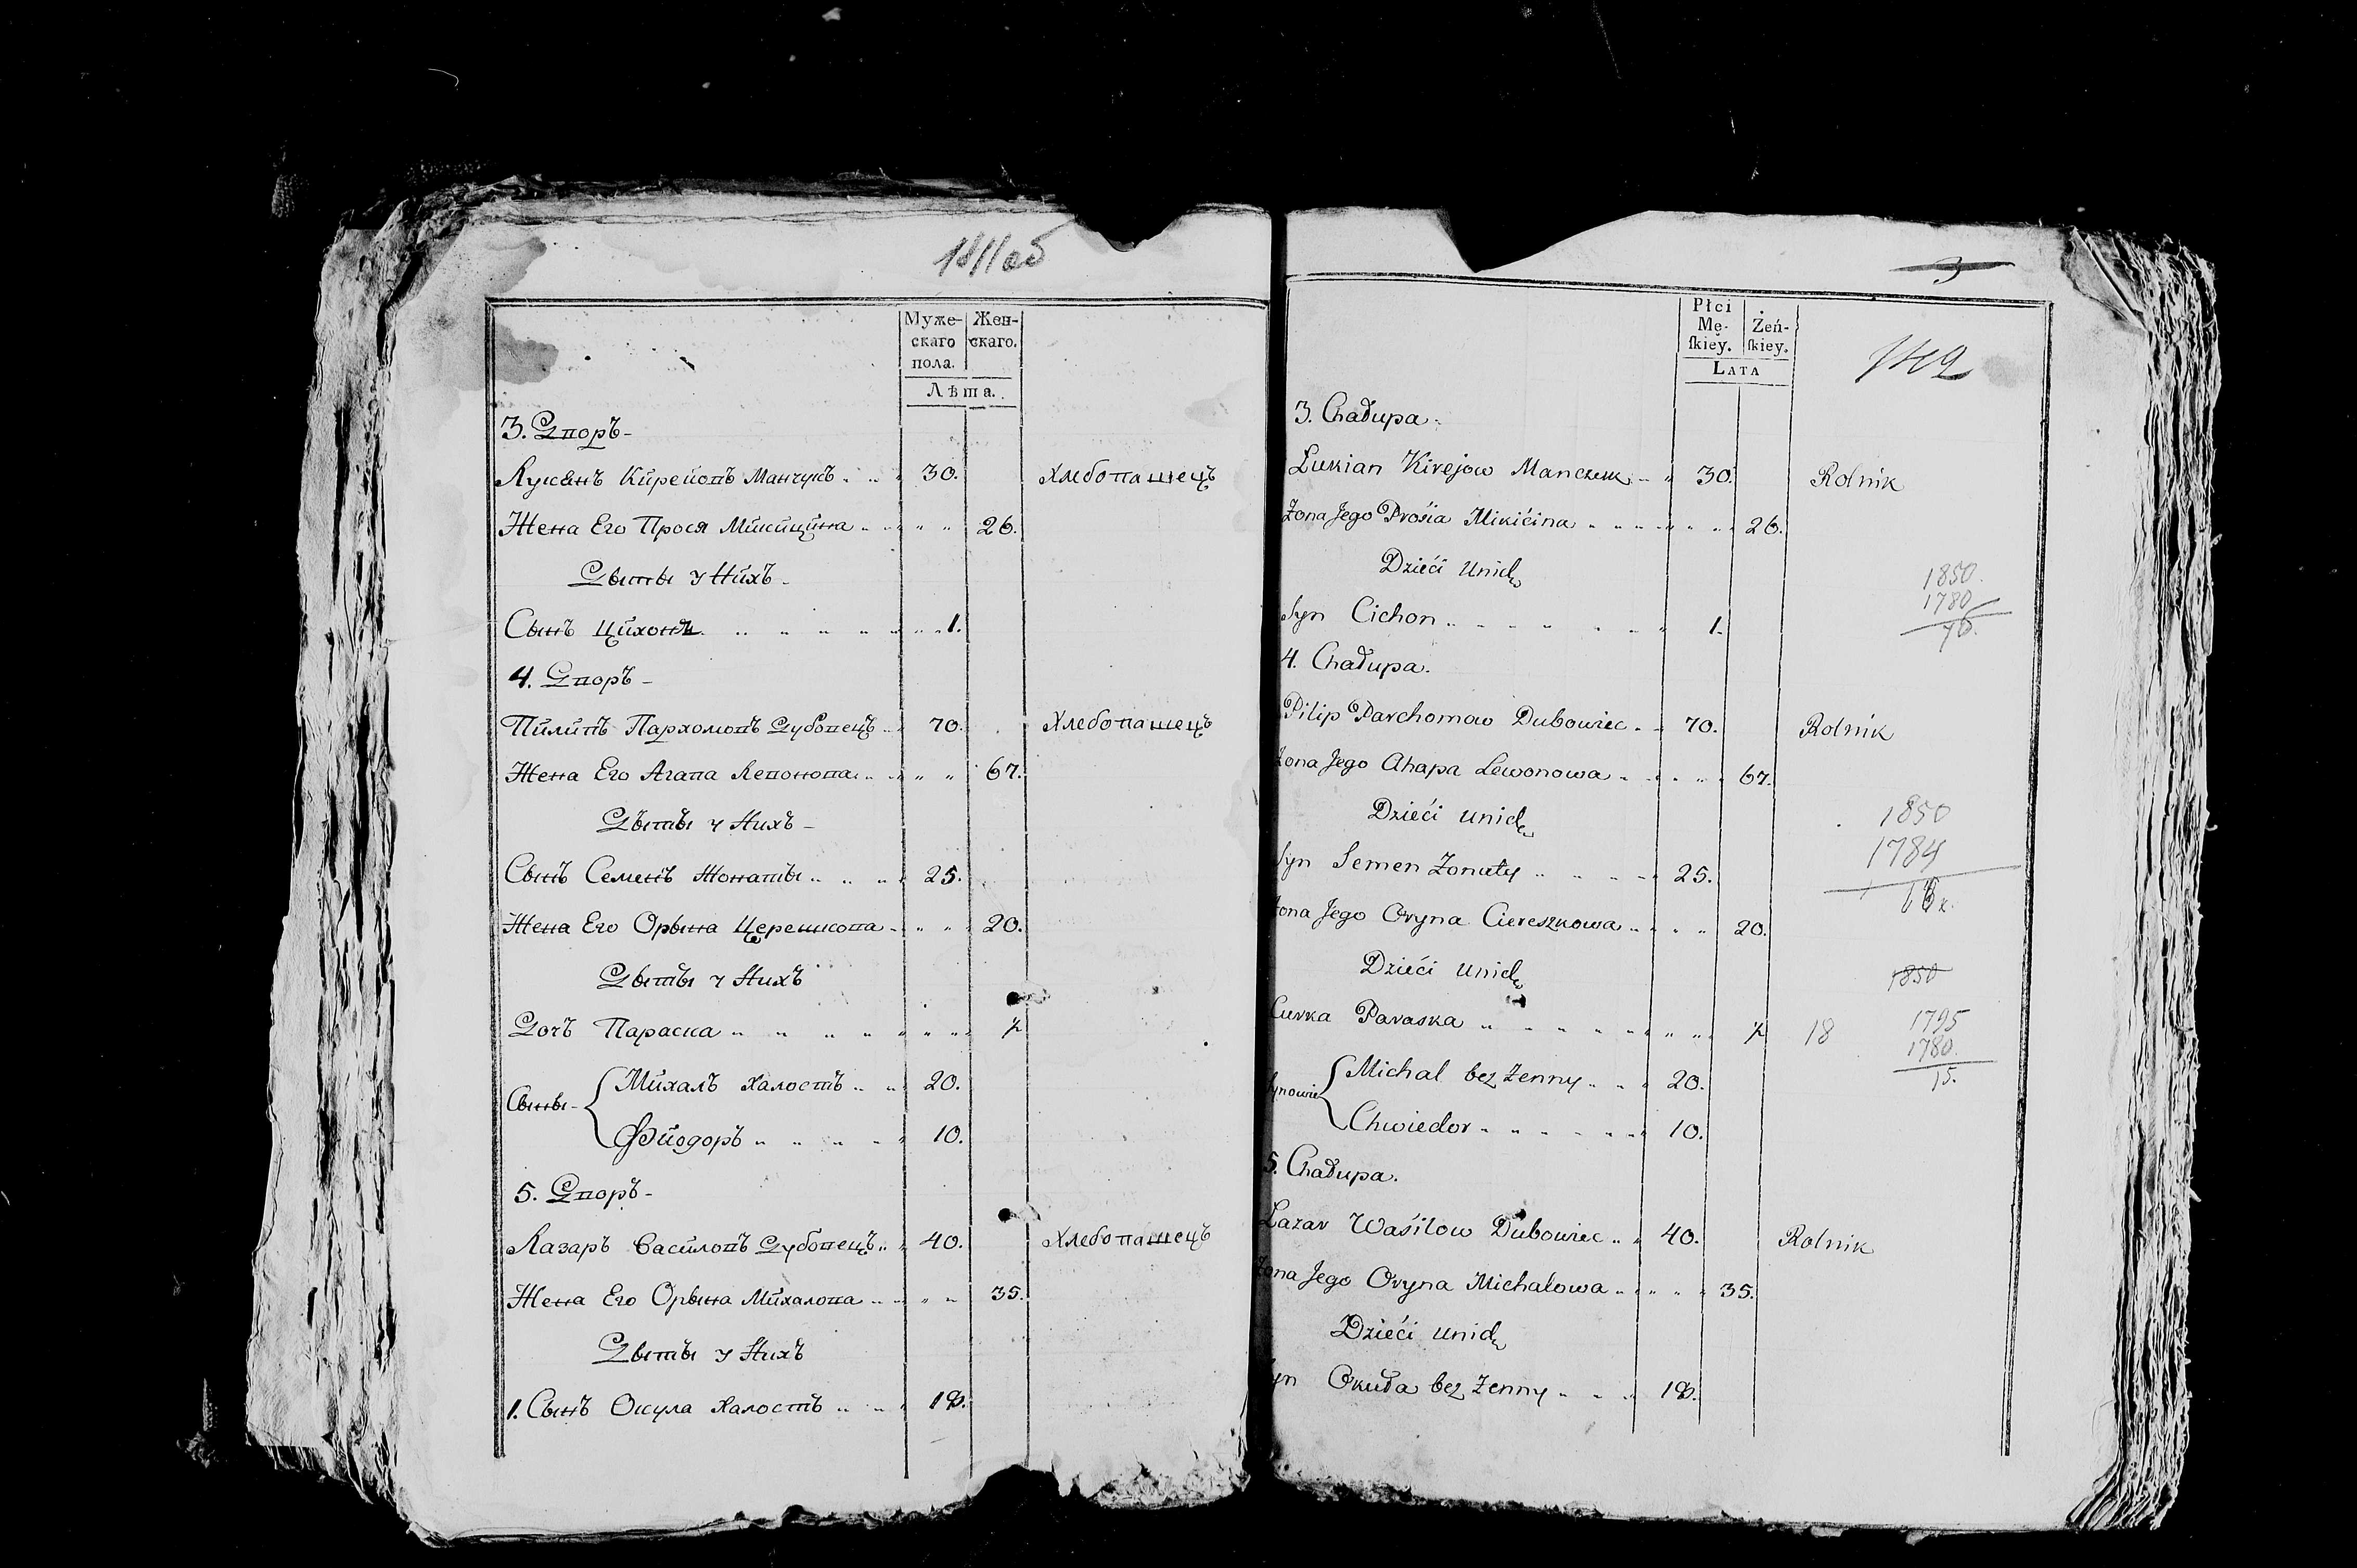 Муже-
скаго
пола.
Жен-
скаго.
Лѣта.
3. Дворъ -
Лукянъ Кирейовъ Манчукъ 30. Хлебопашецъ
Жена Его Прося Микицина 26.
Дыты у Нихъ -
Сынъ Цихонъ 1.
4. Дворъ -
Пилипъ Пархомовъ Дубовецъ 70. Хлебопашецъ
Жена Его Агапа Левонова 67.
Дыты у Нихъ -
Сынъ Семенъ Жонаты 25.
Жена Его Орына Церешкова 20.
Дыты у Нихъ
Дочъ Параска
Сыны - { Михалъ Халостъ 20.
Фйодоръ 10.
5. Дворъ -
Лазаръ Василовъ Дубовецъ 40. Хлебопашецъ
Жена Его Орына Михалова 35.
Дыты у Нихъ
1. Сынъ Окула Халостъ 18.
3
Płci
Mę-
ſkiey.
Żeń-
ſkiey.
LATA
3. Chałupa.
Łukian Kirejow Manczuk 30. Rolnik
Żona Jego Prosia Mikicina 26.
Dzieći u nich
Syn Cichon 1.
1850.
1780
70.
4. Chałupa.
Pilip Parchomow Dubowiec 70. Rolnik
Żona Jego Ahapa Lewonowa 67.
Dzieći u nich
1850
1784
Syn Semen Żonaty 25.
Żona Jego Oryna Ciereszkowa 20.
Dzieći u nich
1850
Curka Paraska 18
1795
1780.
15.
Synowie { Michal bez Żenny 20.
Chwiedor 10.
5. Chałupa.
Łazar Wasilow Dubowiec 40. Rolnik
Żona Jego Oryna Michałowa 35.
Dzieći u nich
Syn Okuła bez Żenny 18.